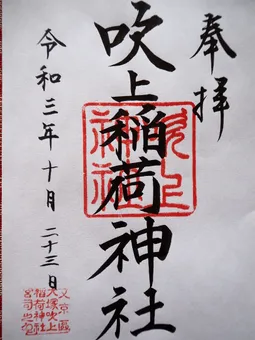 奉拝
吹上稲荷神社
吹上
神社
令和三年十月二十三日
文京區
大塚吹上
稲荷神社